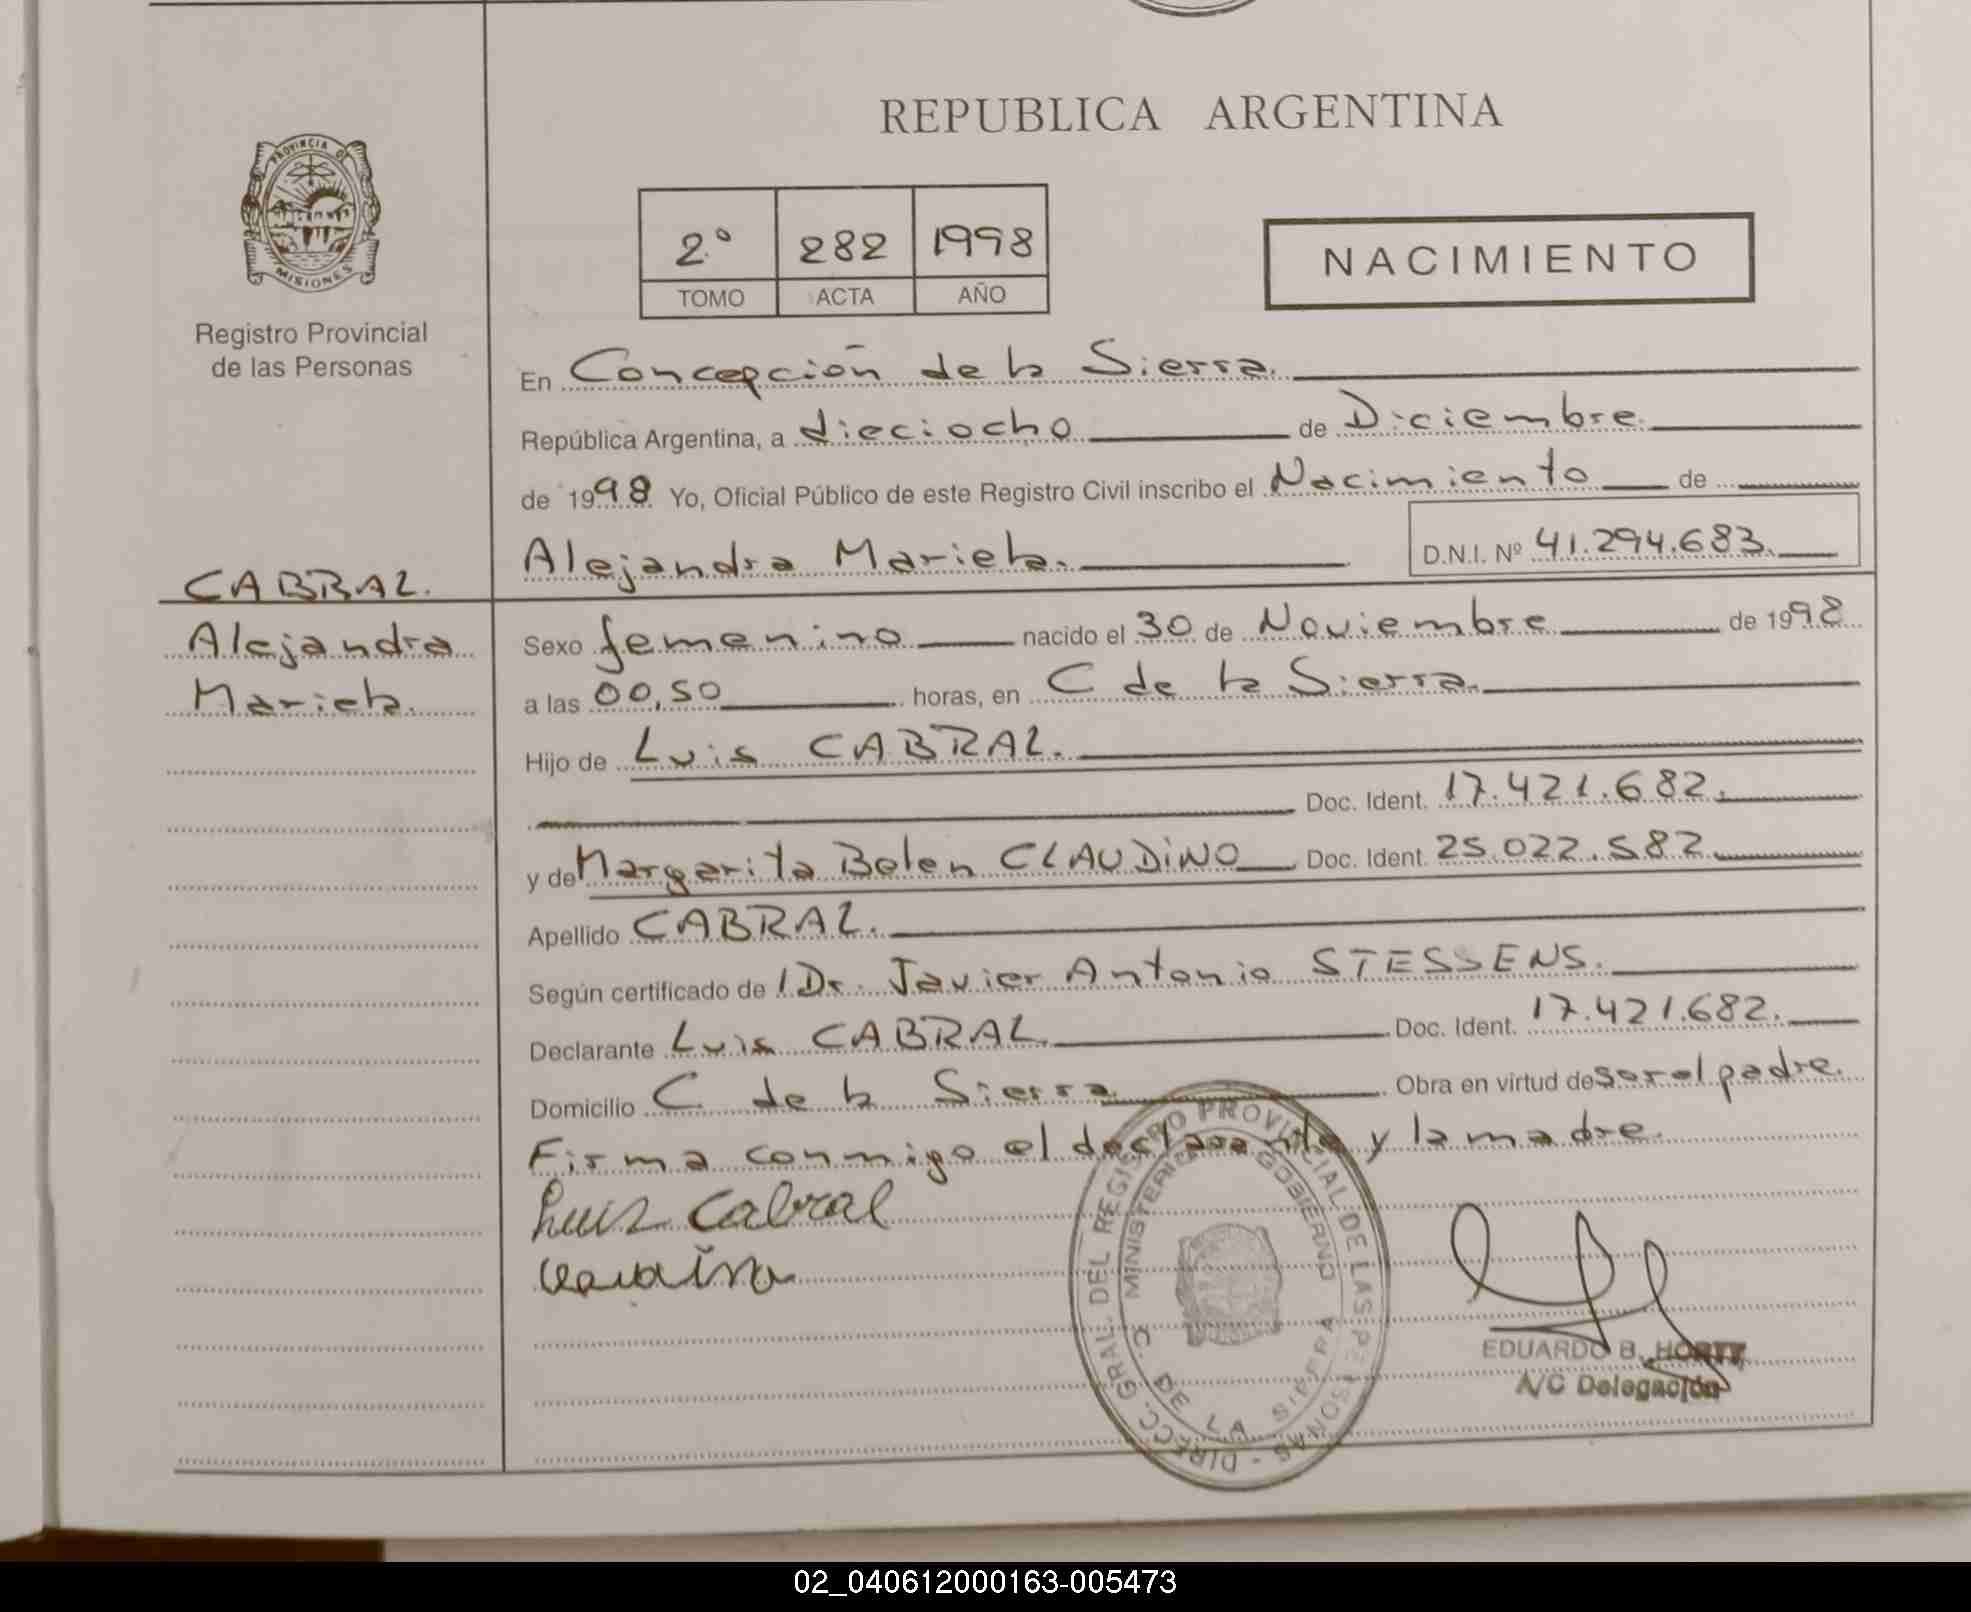 REPUBLICA ARGENTINA
PROVINCIA DE
MISIONES
Registro Provincial
de las Personas
2º 282 1998
TOMO ACTA AÑO
NACIMIENTO
En Concepción de la Sierra.
República Argentina, a dieciocho de Diciembre.
de 1998 Yo, Oficial Público de este Registro Civil inscribo el Nacimiento de
Alejandra Mariela. D.N.I. Nº 41.294.683.
CABRAL.
Alejandra
Mariela.
Sexo femenino nacido el 30 de Noviembre de 1998
a las 00,50 horas, en C de la Sierra.
Hijo de Luis CABRAL.
Doc. Ident. 17.421.682.
y de Margarita Belen CLAUDiNO Doc. Ident. 25.022.582
Apellido CABRAL.
Según certificado de Dr. Javier Antonio STESSENS.
Declarante Luis CABRAL. Doc. Ident. 17.421.682.
Domicilio C de la Sierra Obra en virtud de ser el padre.
Firma conmigo el declarante y la madre.
Luis Cabral
DIRECC. GRAL. DEL REGISTRO PROVINCIAL DE LAS PERSONAS -
MINISTERIO GOBIERNO
C. DE LA SIERRA
EDUARDO B.
A/C Delegación
02_040612000163-005473